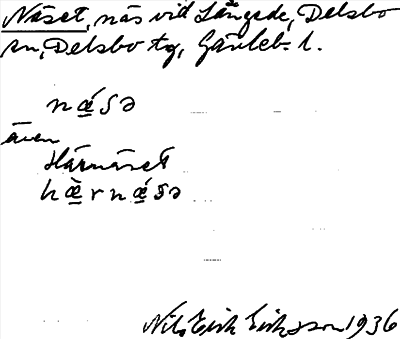 Näset, näs vid Långede, Delsbo
sn, Delsbo tg, Gävleb. l.
nǽ̱sə
även
Härnäset
hæ̱̀rnǽ̱sə
Nils Erik Eriksson 1936